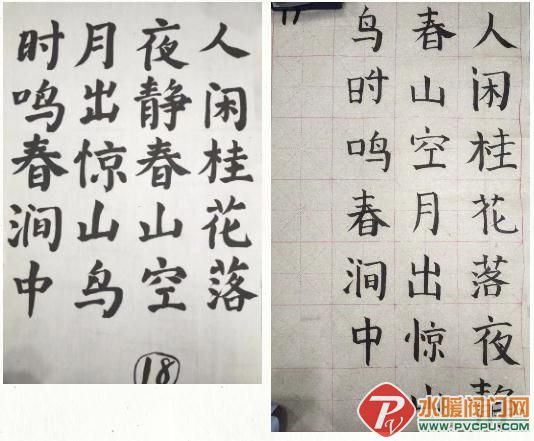 人闲桂花落
夜静春山空
月出惊山鸟
时鸣春涧中
18
人闲桂花落夜静
春山空月出惊山
鸟时鸣春涧中
水暖阀门网
www.PVCPU.com